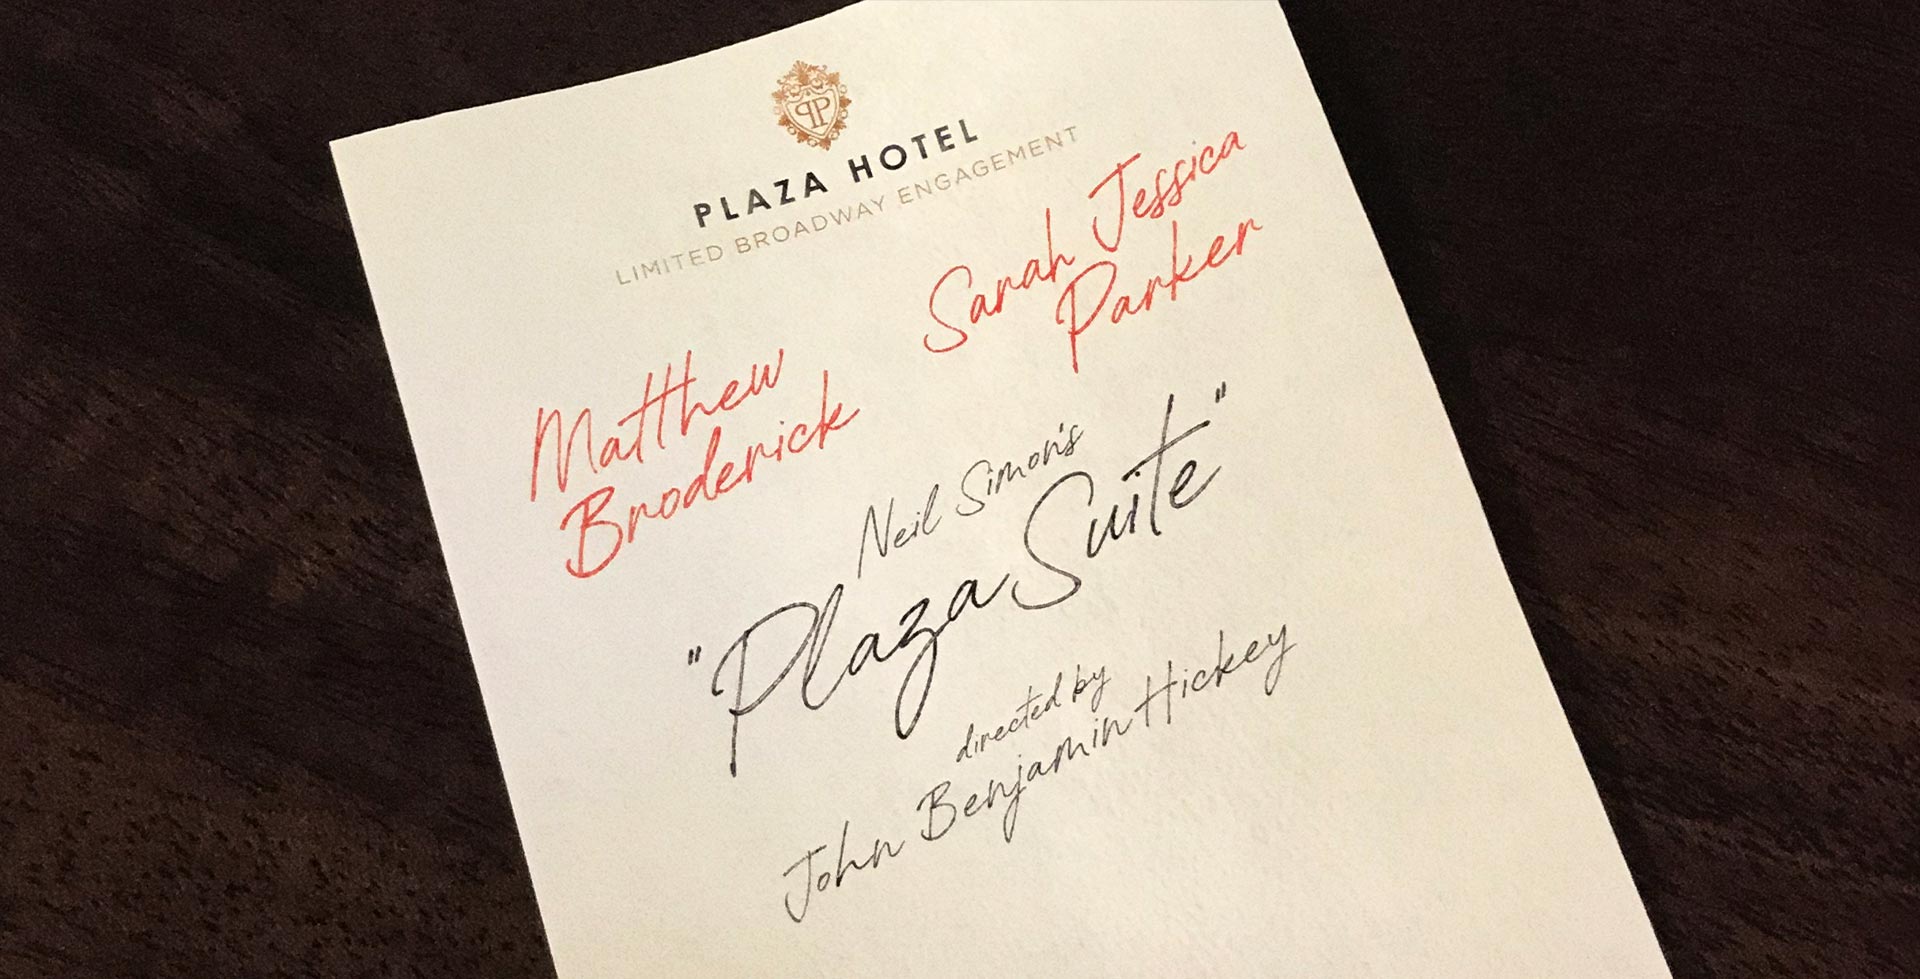 PLAZA HOTEL
LIMITED BROADWAY ENGAGEMENT
Matthew
Broderick
Sarah Jessica
Parker
Neil Simon's
"Plaza Suite"
directed by
John Benjamin Hickey